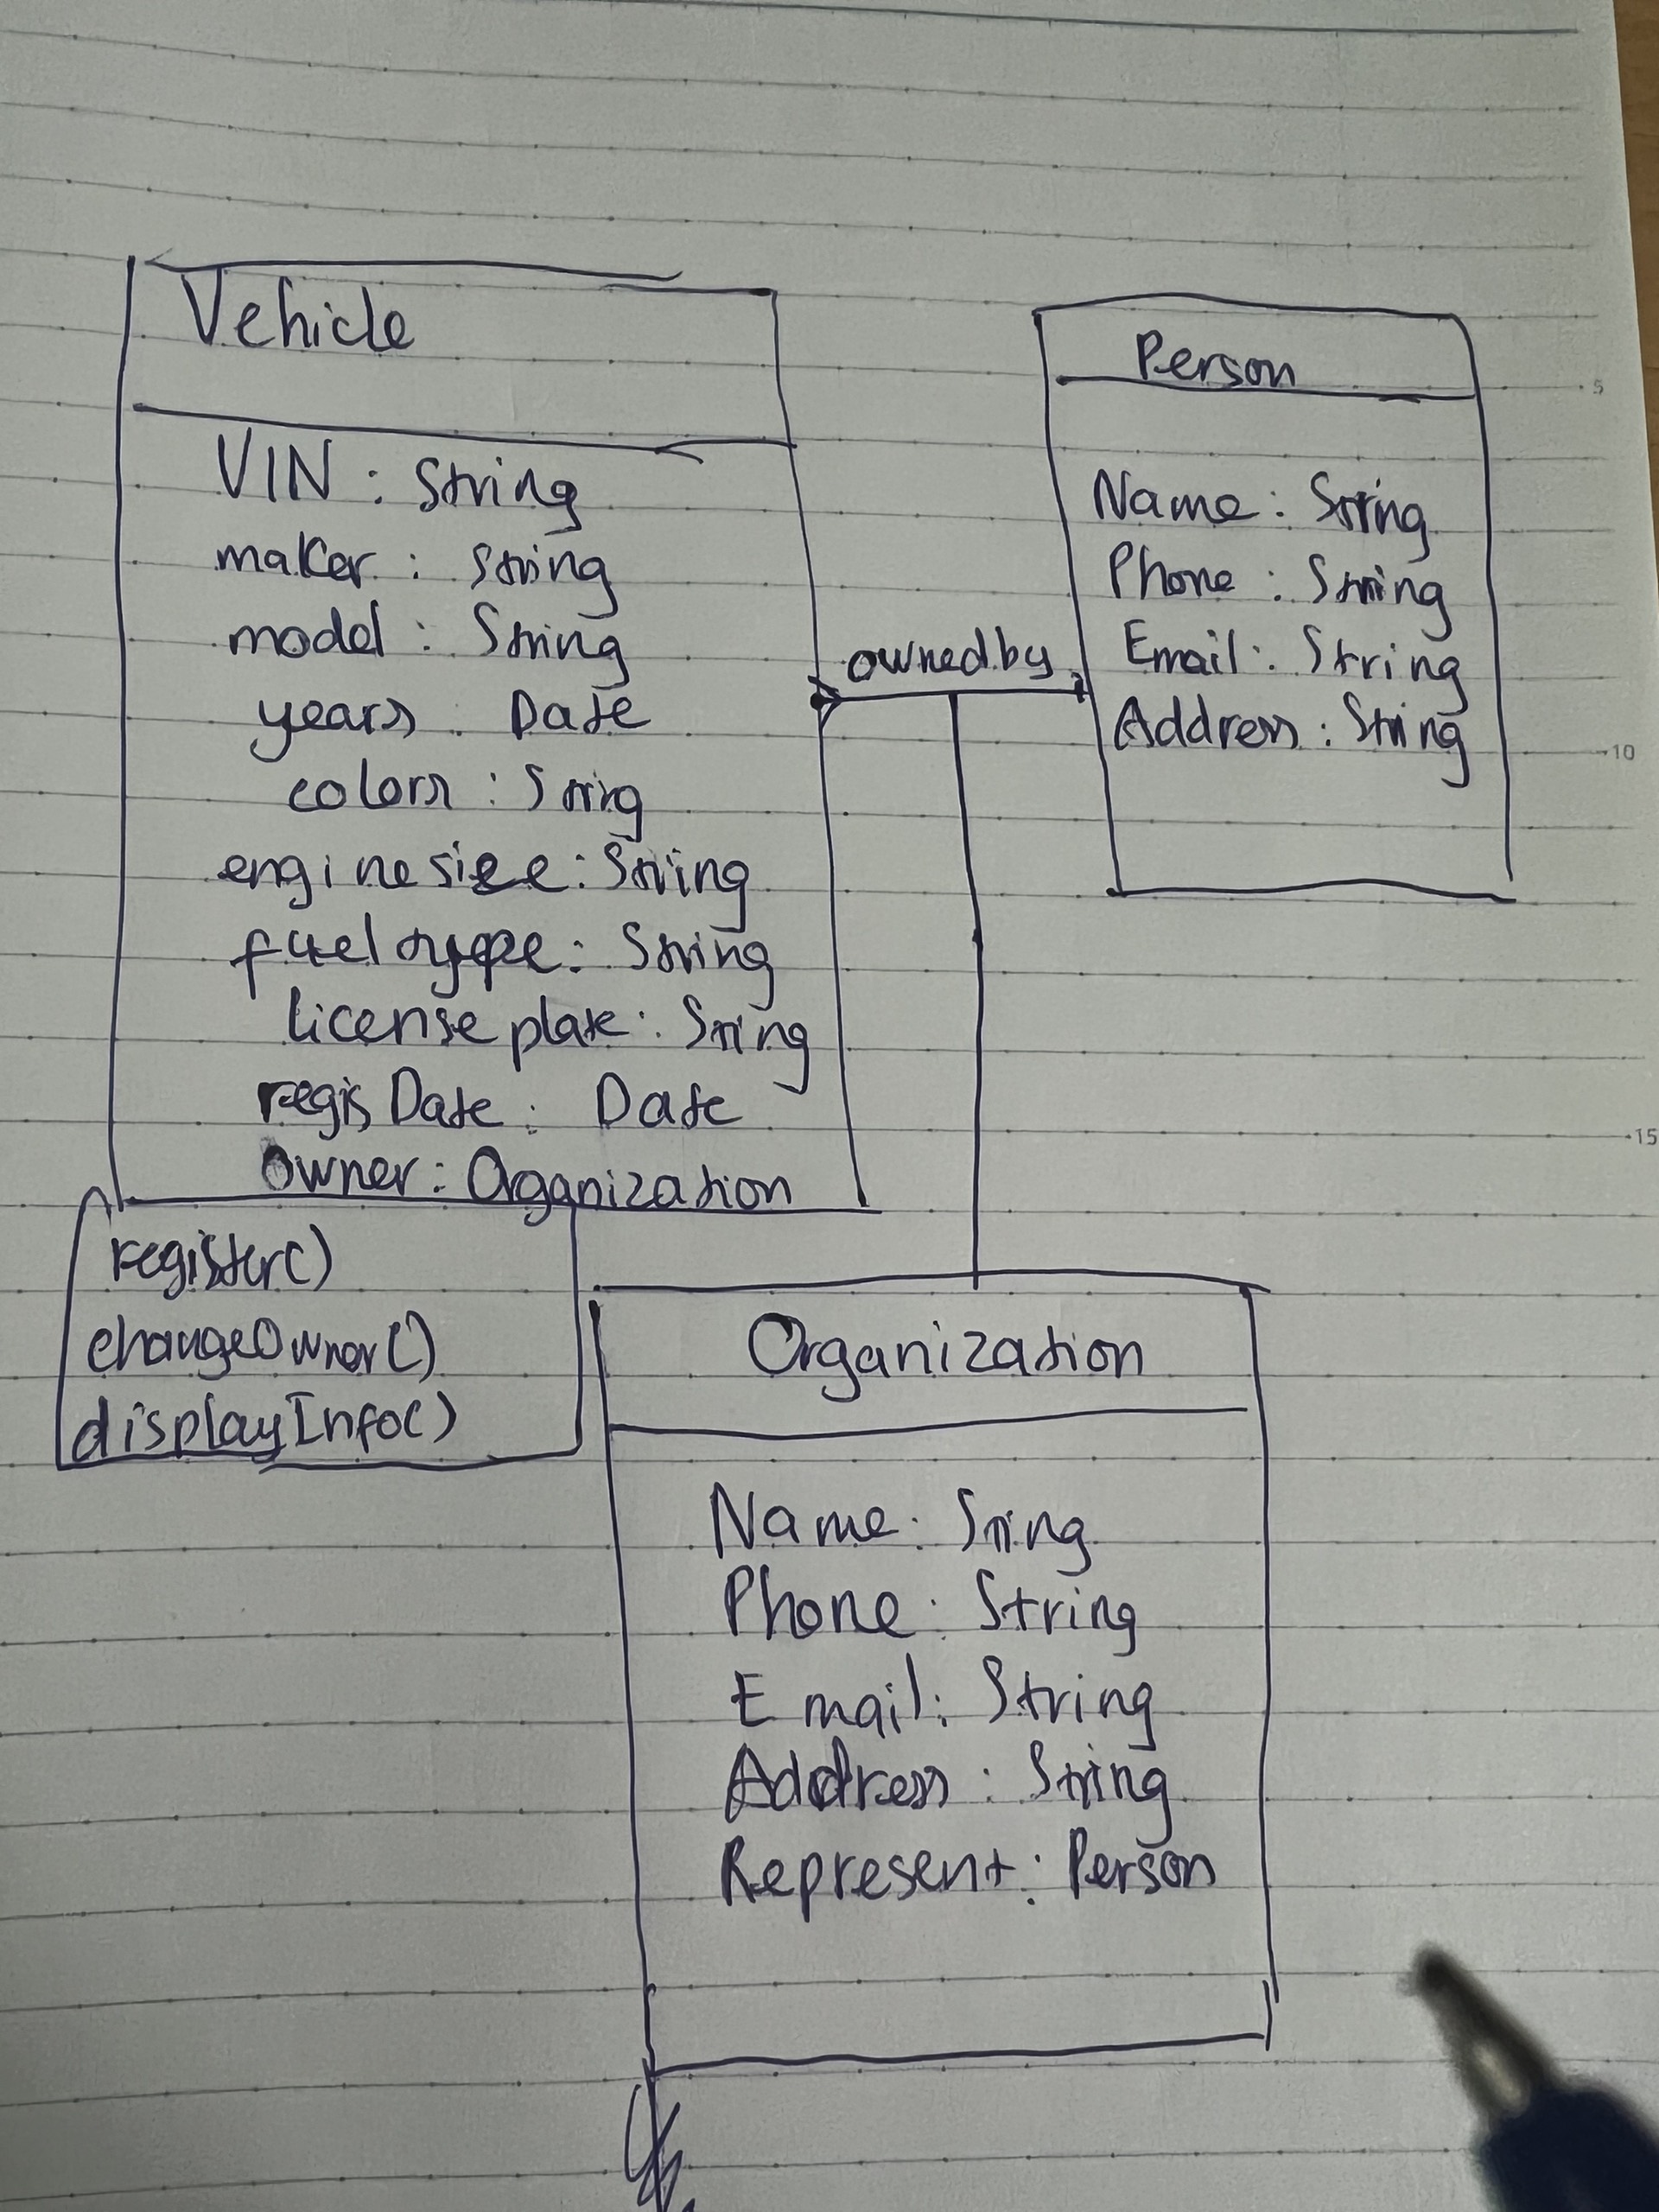 Vehicle
VIN : String
maker : String
model : String
years : Date
colors : String
engine size : String
fuel type : String
license plate : String
regis Date : Date
Owner : Organization
register()
changeOwner()
displayInfo()
owned by
Person
Name : String
Phone : String
Email : String
Address : String
Organization
Name : String
Phone : String
Email : String
Address : String
Represent : Person
5
10
15